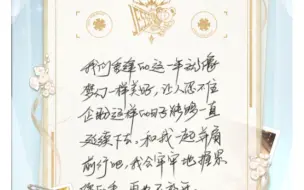 我们重逢的这一年就像
梦幻一样美好，让人忍不住
企盼这样的日子能够一直
延续下去。和我一起并肩
前行吧，我会牢牢地握紧